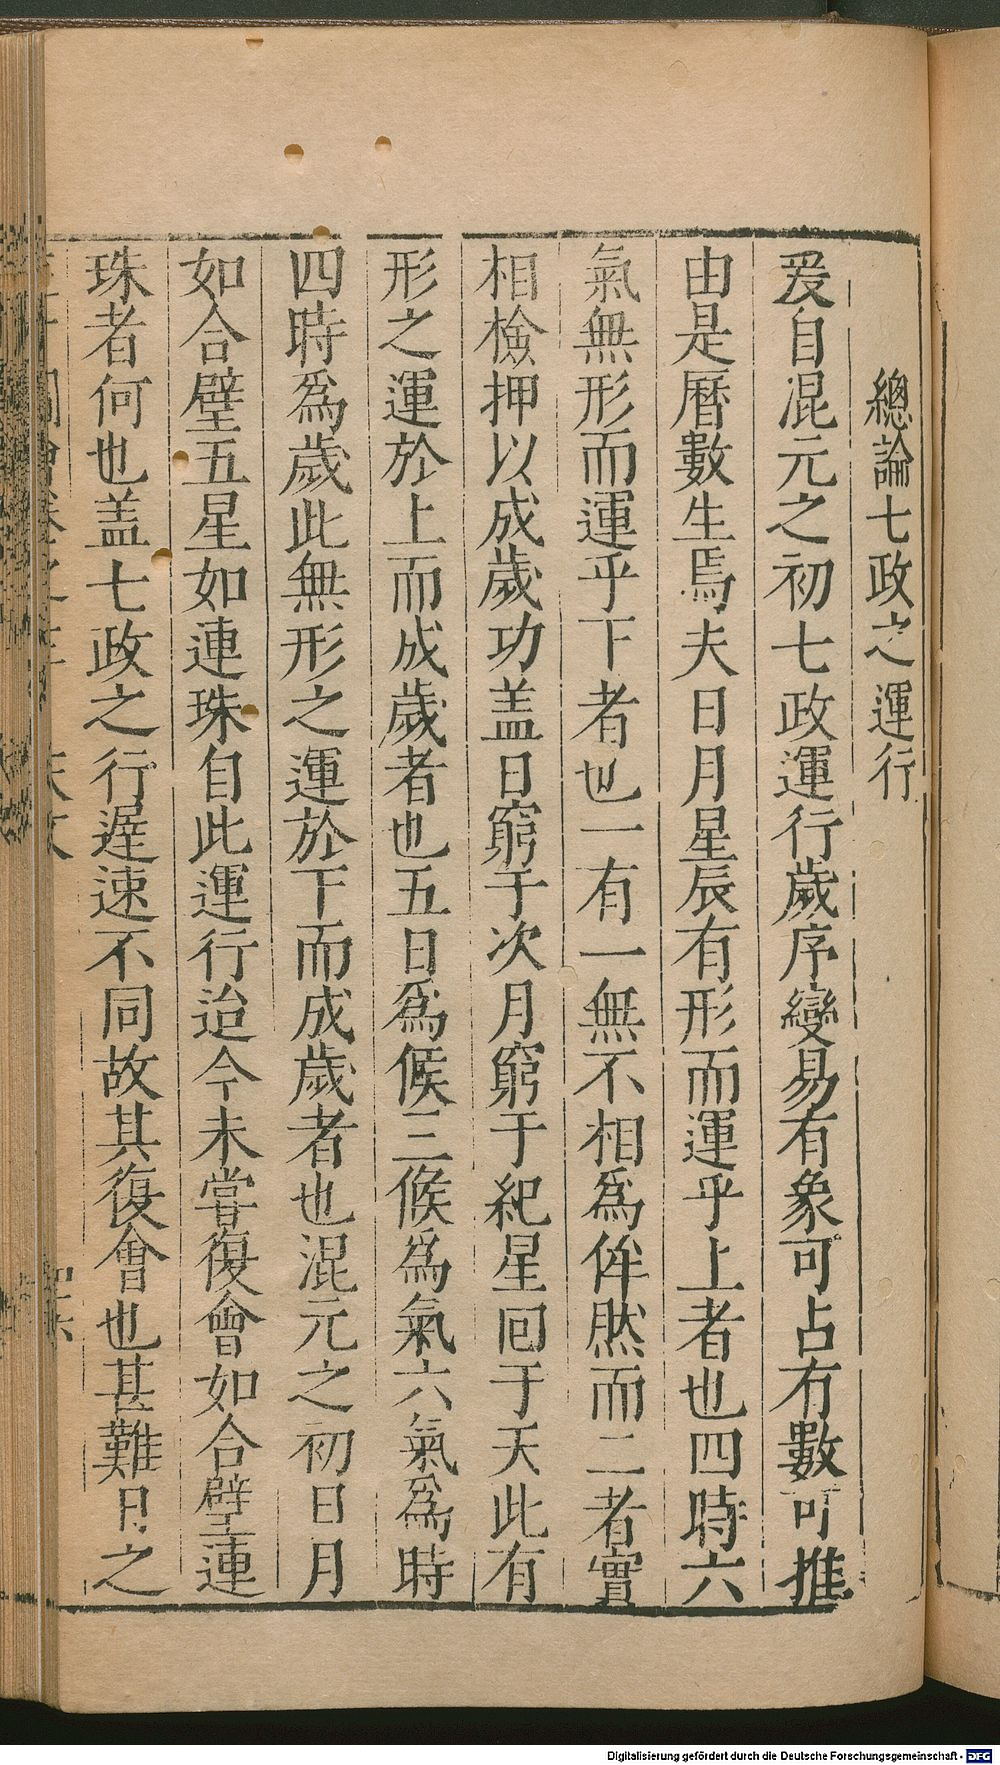 總論七政之運行
爰自混元之初七政運行歲序變易有象可占有數可推
由是曆數生焉夫日月星辰有形而運乎上者也四時六
氣無形而運乎下者也一有一無不相爲侔然而二者實
相檢押以成歲功盖日窮于次月窮于紀星囘于天此有
形之運於上而成歲者也五日爲候三候爲氣六氣爲時
四時爲歲此無形之運於下而成歲者也混元之初日月
如合璧五星如連珠自此運行迨今未嘗復會如合璧連
珠者何也盖七政之行遲速不同故其復會也甚難日之
Digitalisierung gefördert durch die Deutsche Forschungsgemeinschaft - DFG